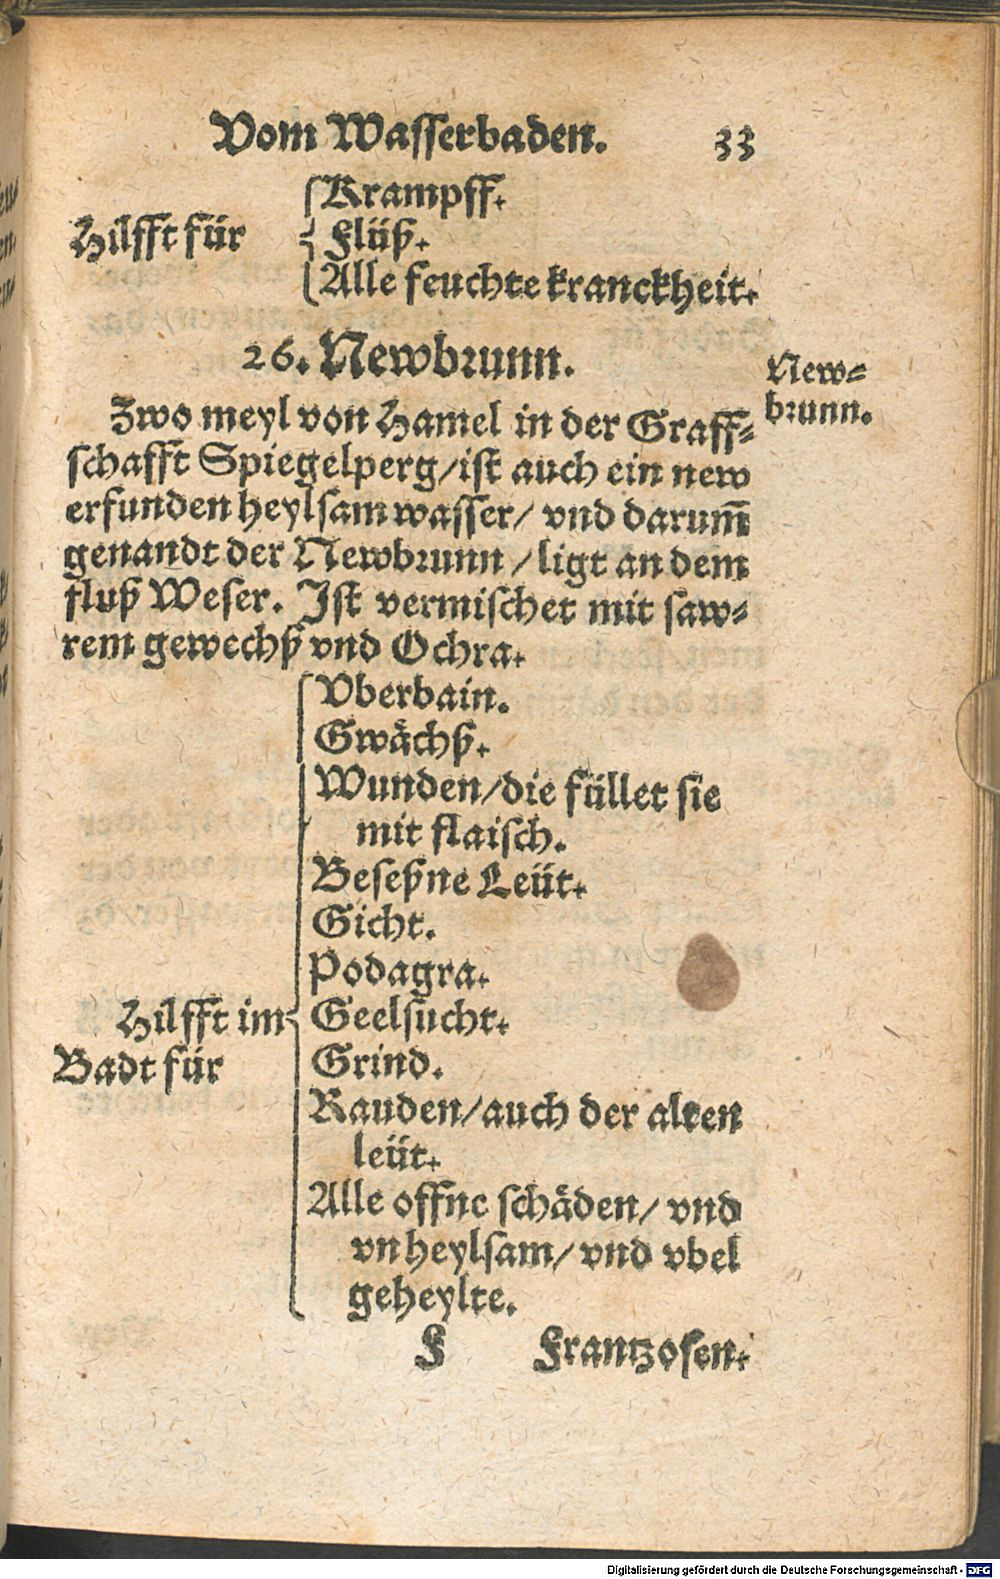 Vom Wasserbaden. 33
Krampff.
Hilfft für
Flüß.
Alle feuchte kranckheit.
26. Newbrunn.
New-
brunn.
Zwo meyl von Hamel in der Graff-
schafft Spiegelperg/ist auch ein new
erfunden heylsam wasser/ vnd darum̃
genandt der Newbrunn/ligt an dem
fluß Weser. Ist vermischet mit saw-
rem gewechß vnd Ochra.
Vberbain.
Gwåchß.
Wunden/die füllet sie
mit flaisch.
Beseßne Leüt.
Gicht.
Podagra.
Hilfft im
Badt für
Geelsucht.
Grind.
Rauden/auch der alten
leüt.
Alle offne schåden/ vnd
vnheylsam/ vnd vbel
geheylte.
F Frantzosen.
Digitalisierung gefördert durch die Deutsche Forschungsgemeinschaft - DFG